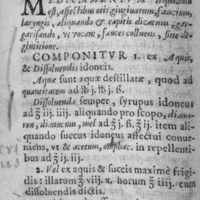 est, affectibus oris gingivarum, faucium,
laryngis, aliquando & capitis dicatum, gar-
garisando, ut vocant, fauces colluens, sine de-
glutitione.
COMPONITUR 1. ex Aquis,
& Dissolvendis idoneis.
Aquæ sunt aquæ destillatæ, quod ad
quantitatem ad lb j. lb j. ß.
Dissolvenda semper, syrupus idoneus
ad ℥ iij. iiij. aliquando pro scopo, diamo-
ron, dianucum, mel ad ℥ j. ß. ℥ ij. item ali-
quando succus idoneus affectui conve-
niens, ut & acetum, omphac. in repellenti-
bus ad ℥ ij. iiij.
2. Vel ex aquis & succis maxime frigi-
dis: illarum ℥ viij. x. horum ℥ iiij. cum
dissolvendis dictis.